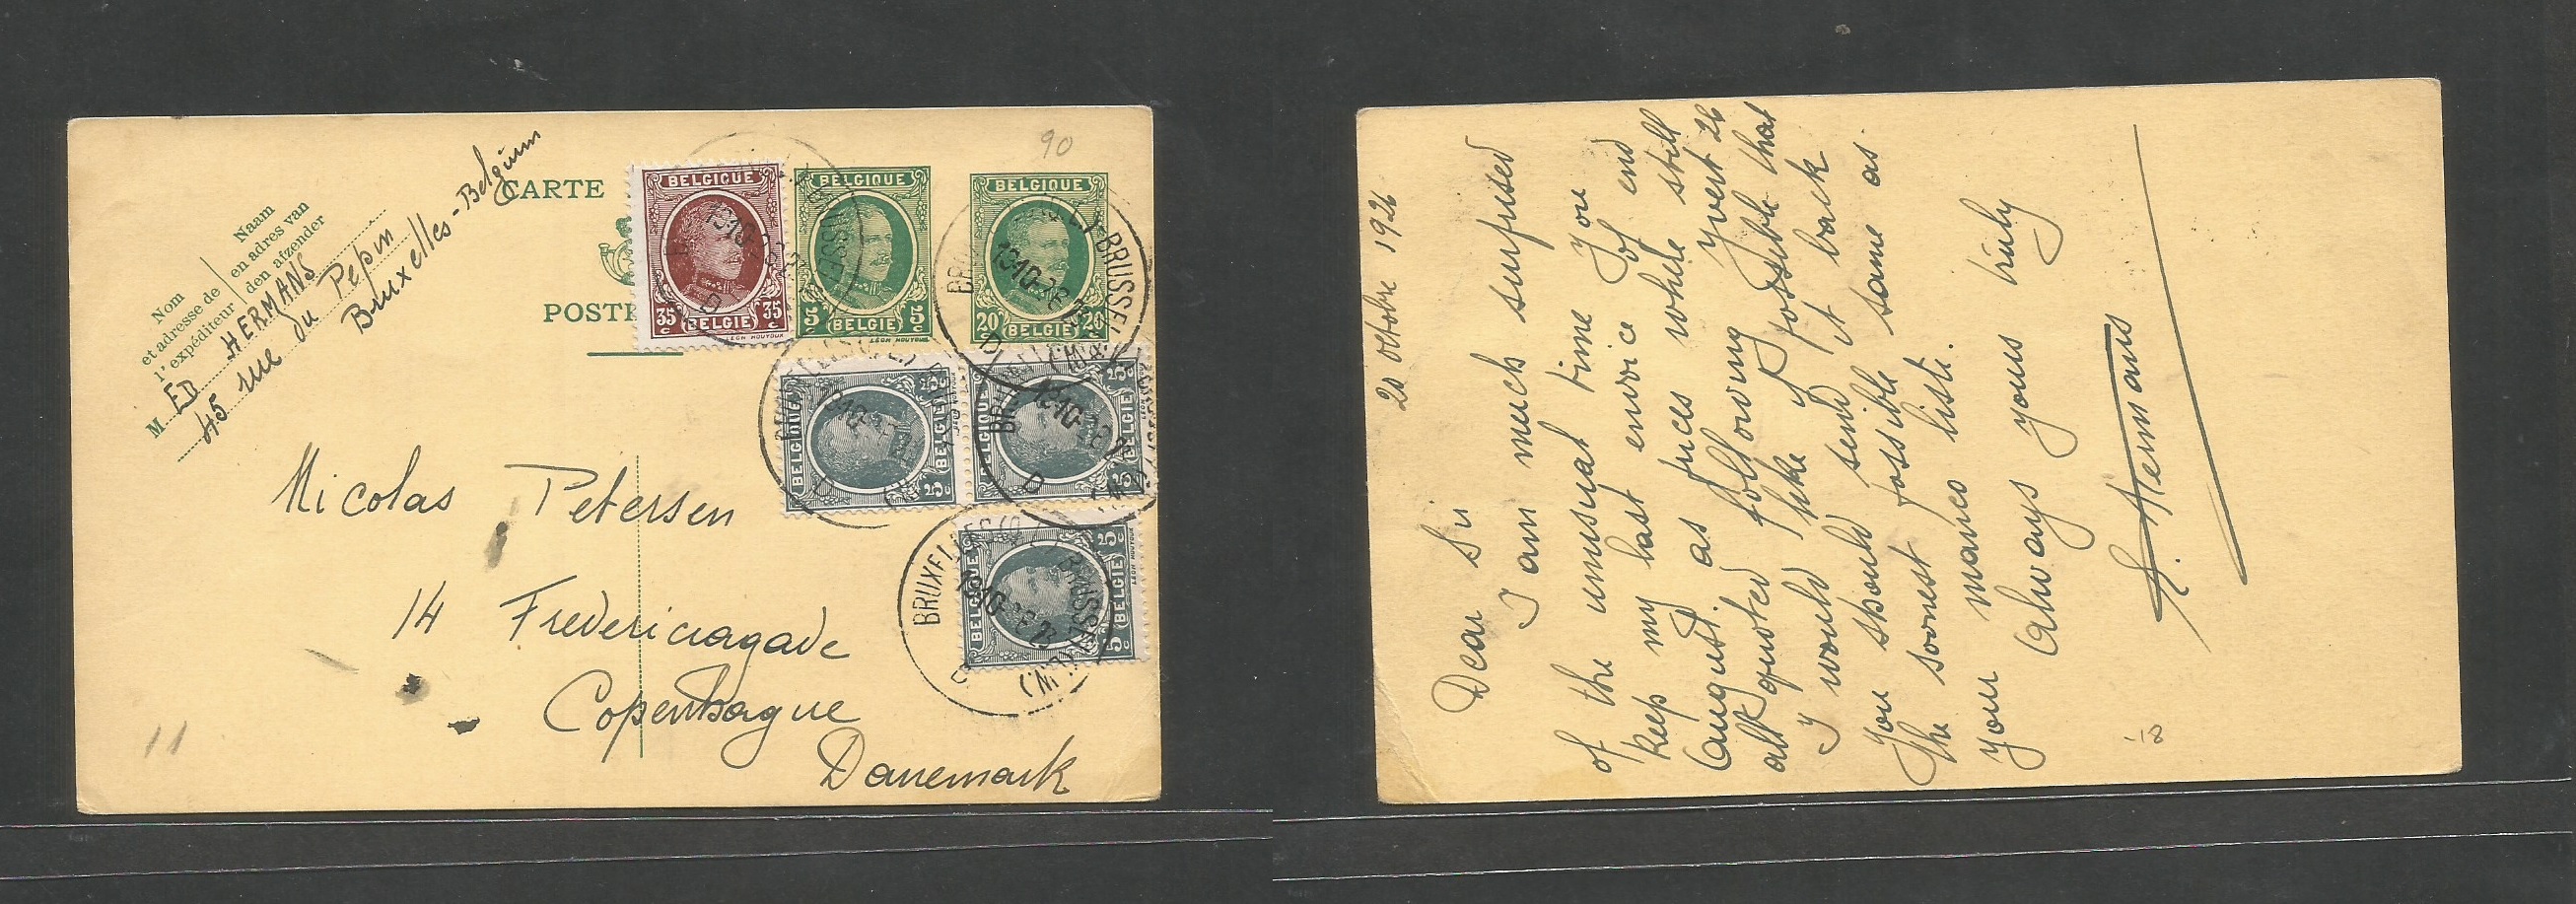 90
Nom
et adresse de
l'expéditeur
Naam
en adres van
den afzender
M ED HERMANS
45 rue du Pepin
Bruxelles - Belgium
CARTE
POSTK
BELGIQUE
35 c BELGIE 35 c
LÉON HOUYOUX
BELGIQUE
5 c BELGIE 5 c
LÉON HOUYOUX
BELGIQUE
20 c BELGIE 20 c
BELGIQUE
5 c BELGIE 5 c
BELGIQUE
5 c BELGIE 5 c
BELGIQUE
5 c BELGIE 5 c
BRUXELLES BRUSSEL
Nicolas Petersen
14 Fredericiagade
Copenhague
Danemark
11
20 octobre 1926
Dear Sir
I am much surprised
of the unusual time you
keep my last envoice of end
August. as prices where still
all quoted following Yvert 26
I would like if possible that
you should send it back
the soonest possible same as
your manco liste.
Always yours truly
Hermans
-18